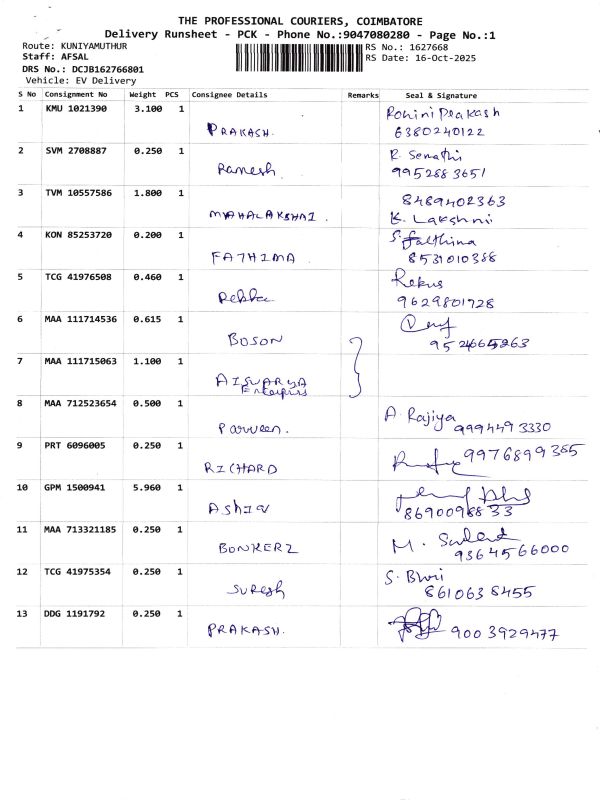 THE PROFESSIONAL COURIERS, COIMBATORE
Delivery Runsheet - PCK - Phone No.:9047080280 - Page No.:1
Route: KUNIYAMUTHUR
RS No.: 1627668
Staff: AFSAL
RS Date: 16-Oct-2025
DRS No.: DCJB162766801
Vehicle: EV Delivery
S No Consignment No Weight PCS Consignee Details Remarks Seal & Signature
1 KMU 1021390 3.100 1 PRAKASH. Rohini Prakash
6380240122
2 SVM 2708887 0.250 1 Ramesh. R. Semathi
9952883651
3 TVM 10557586 1.800 1 MAHALAKSHMI. 8489402363
K. Lakshmi
4 KON 85253720 0.200 1 FATHIMA. S. Falthima
8531010388
5 TCG 41976508 0.460 1
9629801728
6 MAA 111714536 0.615 1 BOSON
7 MAA 111715063 1.100 1 AISWARYA
Enterpris
8 MAA 712523654 0.500 1 Parveen. A. Rajiya
9994493330
9 PRT 6096005 0.250 1 RICHARD 9976899385
10 GPM 1500941 5.960 1
8690098833
11 MAA 713321185 0.250 1 BONKERZ M.
9364566000
12 TCG 41975354 0.250 1 SURESH S.
8610638455
13 DDG 1191792 0.250 1 PRAKASH. 9003929477